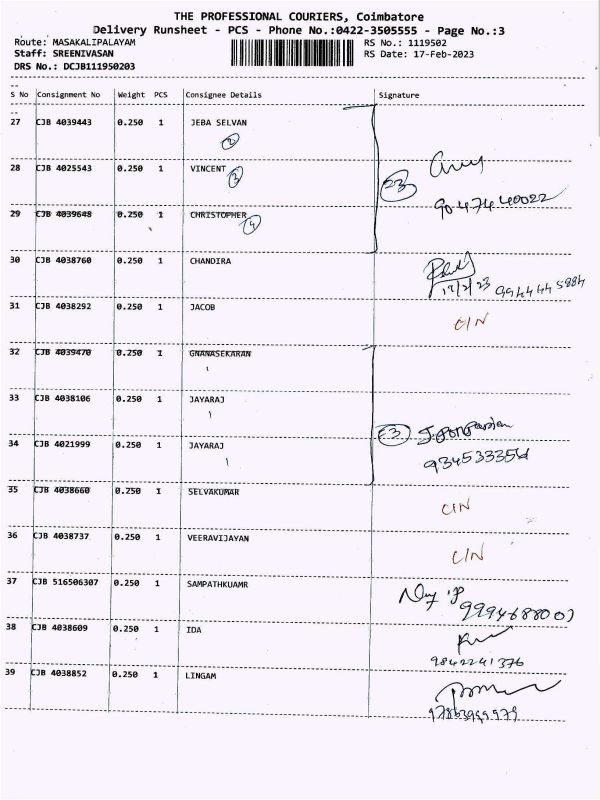 THE PROFESSIONAL COURIERS, Coimbatore
Delivery Runsheet - PCS - Phone No.:0422-3505555 - Page No.:3
Route: MASAKALIPALAYAM RS No.: 1119502
Staff: SREENIVASAN RS Date: 17-Feb-2023
DRS No.: DCJB111950203
S No Consignment No Weight PCS Consignee Details Signature
27 CJB 4039443 0.250 1 JEBA SELVAN
2
28 CJB 4025543 0.250 1 VINCENT
3
23
9047440022
29 CJB 4039648 0.250 1 CHRISTOPHER
4
30 CJB 4038760 0.250 1 CHANDIRA
17/2/23 9944445884
31 CJB 4038292 0.250 1 JACOB
C/N
32 CJB 4039470 0.250 1 GNANASEKARAN
1
33 CJB 4038106 0.250 1 JAYARAJ
1
3
34 CJB 4021999 0.250 1 JAYARAJ
1
35 CJB 4038660 0.250 1 SELVAKUMAR
C/N
36 CJB 4038737 0.250 1 VEERAVIJAYAN
C/N
37 CJB 516506307 0.250 1 SAMPATHKUAMR
38 CJB 4038609 0.250 1 IDA
9842241376
39 CJB 4038852 0.250 1 LINGAM